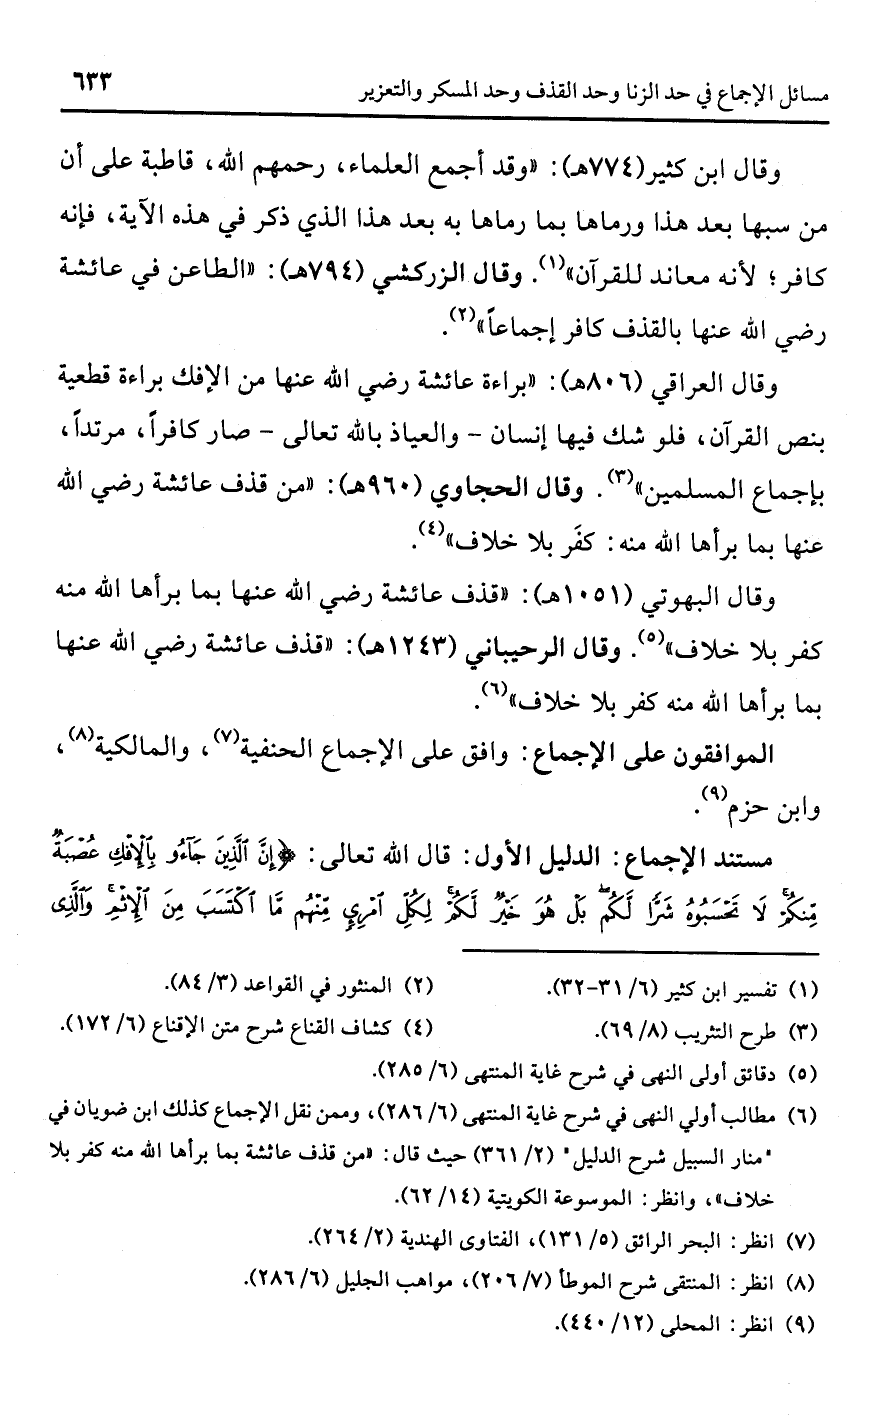 مسائل الإجماع في حد الزنا وحد القذف وحد المسكر والتعزير ٦٣٣
وقال ابن كثير(٧٧٤هـ): «وقد أجمع العلماء، رحمهم الله، قاطبة على أن
من سبها بعد هذا ورماها بما رماها به بعد هذا الذي ذكر في هذه الآية، فإنه
كافر؛ لأنه معاند للقرآن»(١). وقال الزركشي (٧٩٤هـ): «الطاعن في عائشة
رضي الله عنها بالقذف كافر إجماعاً»(٢).
وقال العراقي (٨٠٦هـ): «براءة عائشة رضي الله عنها من الإفك براءة قطعية
بنص القرآن، فلو شك فيها إنسان - والعياذ بالله تعالى - صار كافراً، مرتداً،
بإجماع المسلمين»(٣). وقال الحجاوي (٩٦٠هـ): «من قذف عائشة رضي الله
عنها بما برأها الله منه: كفَر بلا خلاف»(٤).
وقال البهوتي (١٠٥١هـ): «قذف عائشة رضي الله عنها بما برأها الله منه
كفر بلا خلاف»(٥). وقال الرحيباني (١٢٤٣هـ): «قذف عائشة رضي الله عنها
بما برأها الله منه كفر بلا خلاف»(٦).
الموافقون على الإجماع: وافق على الإجماع الحنفية(٧)، والمالكية(٨)،
وابن حزم(٩).
مستند الإجماع: الدليل الأول: قال الله تعالى: ﴿إِنَّ ٱلَّذِينَ جَآءُو بِٱلْإِفْكِ عُصْبَةٌ
مِّنكُمْ ۚ لَا تَحْسَبُوهُ شَرًّا لَّكُم ۖ بَلْ هُوَ خَيْرٌ لَّكُمْ ۚ لِكُلِّ ٱمْرِئٍ مِّنْهُم مَّا ٱكْتَسَبَ مِنَ ٱلْإِثْمِ ۚ وَٱلَّذِى
(١) تفسير ابن كثير (٦/ ٣١-٣٢). (٢) المنثور في القواعد (٣/ ٨٤).
(٣) طرح التثريب (٨/ ٦٩). (٤) كشاف القناع شرح متن الإقناع (٦/ ١٧٢).
(٥) دقائق أولى النهى في شرح غاية المنتهى (٦/ ٢٨٥).
(٦) مطالب أولي النهى في شرح غاية المنتهى (٦/ ٢٨٦)، وممن نقل الإجماع كذلك ابن ضويان في
"منار السبيل شرح الدليل" (٢/ ٣٦١) حيث قال: «من قذف عائشة بما برأها الله منه كفر بلا
خلاف»، وانظر: الموسوعة الكويتية (١٤/ ٦٢).
(٧) انظر: البحر الرائق (٥/ ١٣١)، الفتاوى الهندية (٢/ ٢٦٤).
(٨) انظر: المنتقى شرح الموطأ (٧/ ٢٠٦)، مواهب الجليل (٦/ ٢٨٦).
(٩) انظر: المحلى (١٢/ ٤٤٠).